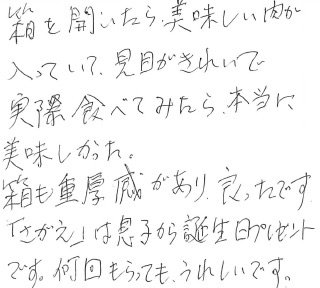 箱を開いたら、美味しい肉が
入っていて、見目がきれいで
実際食べてみたら、本当に
美味しかった。
箱も重厚感があり、良ったです。
「さがえ」は息子から誕生日プレゼント
です。何回もらっても、うれしいです。